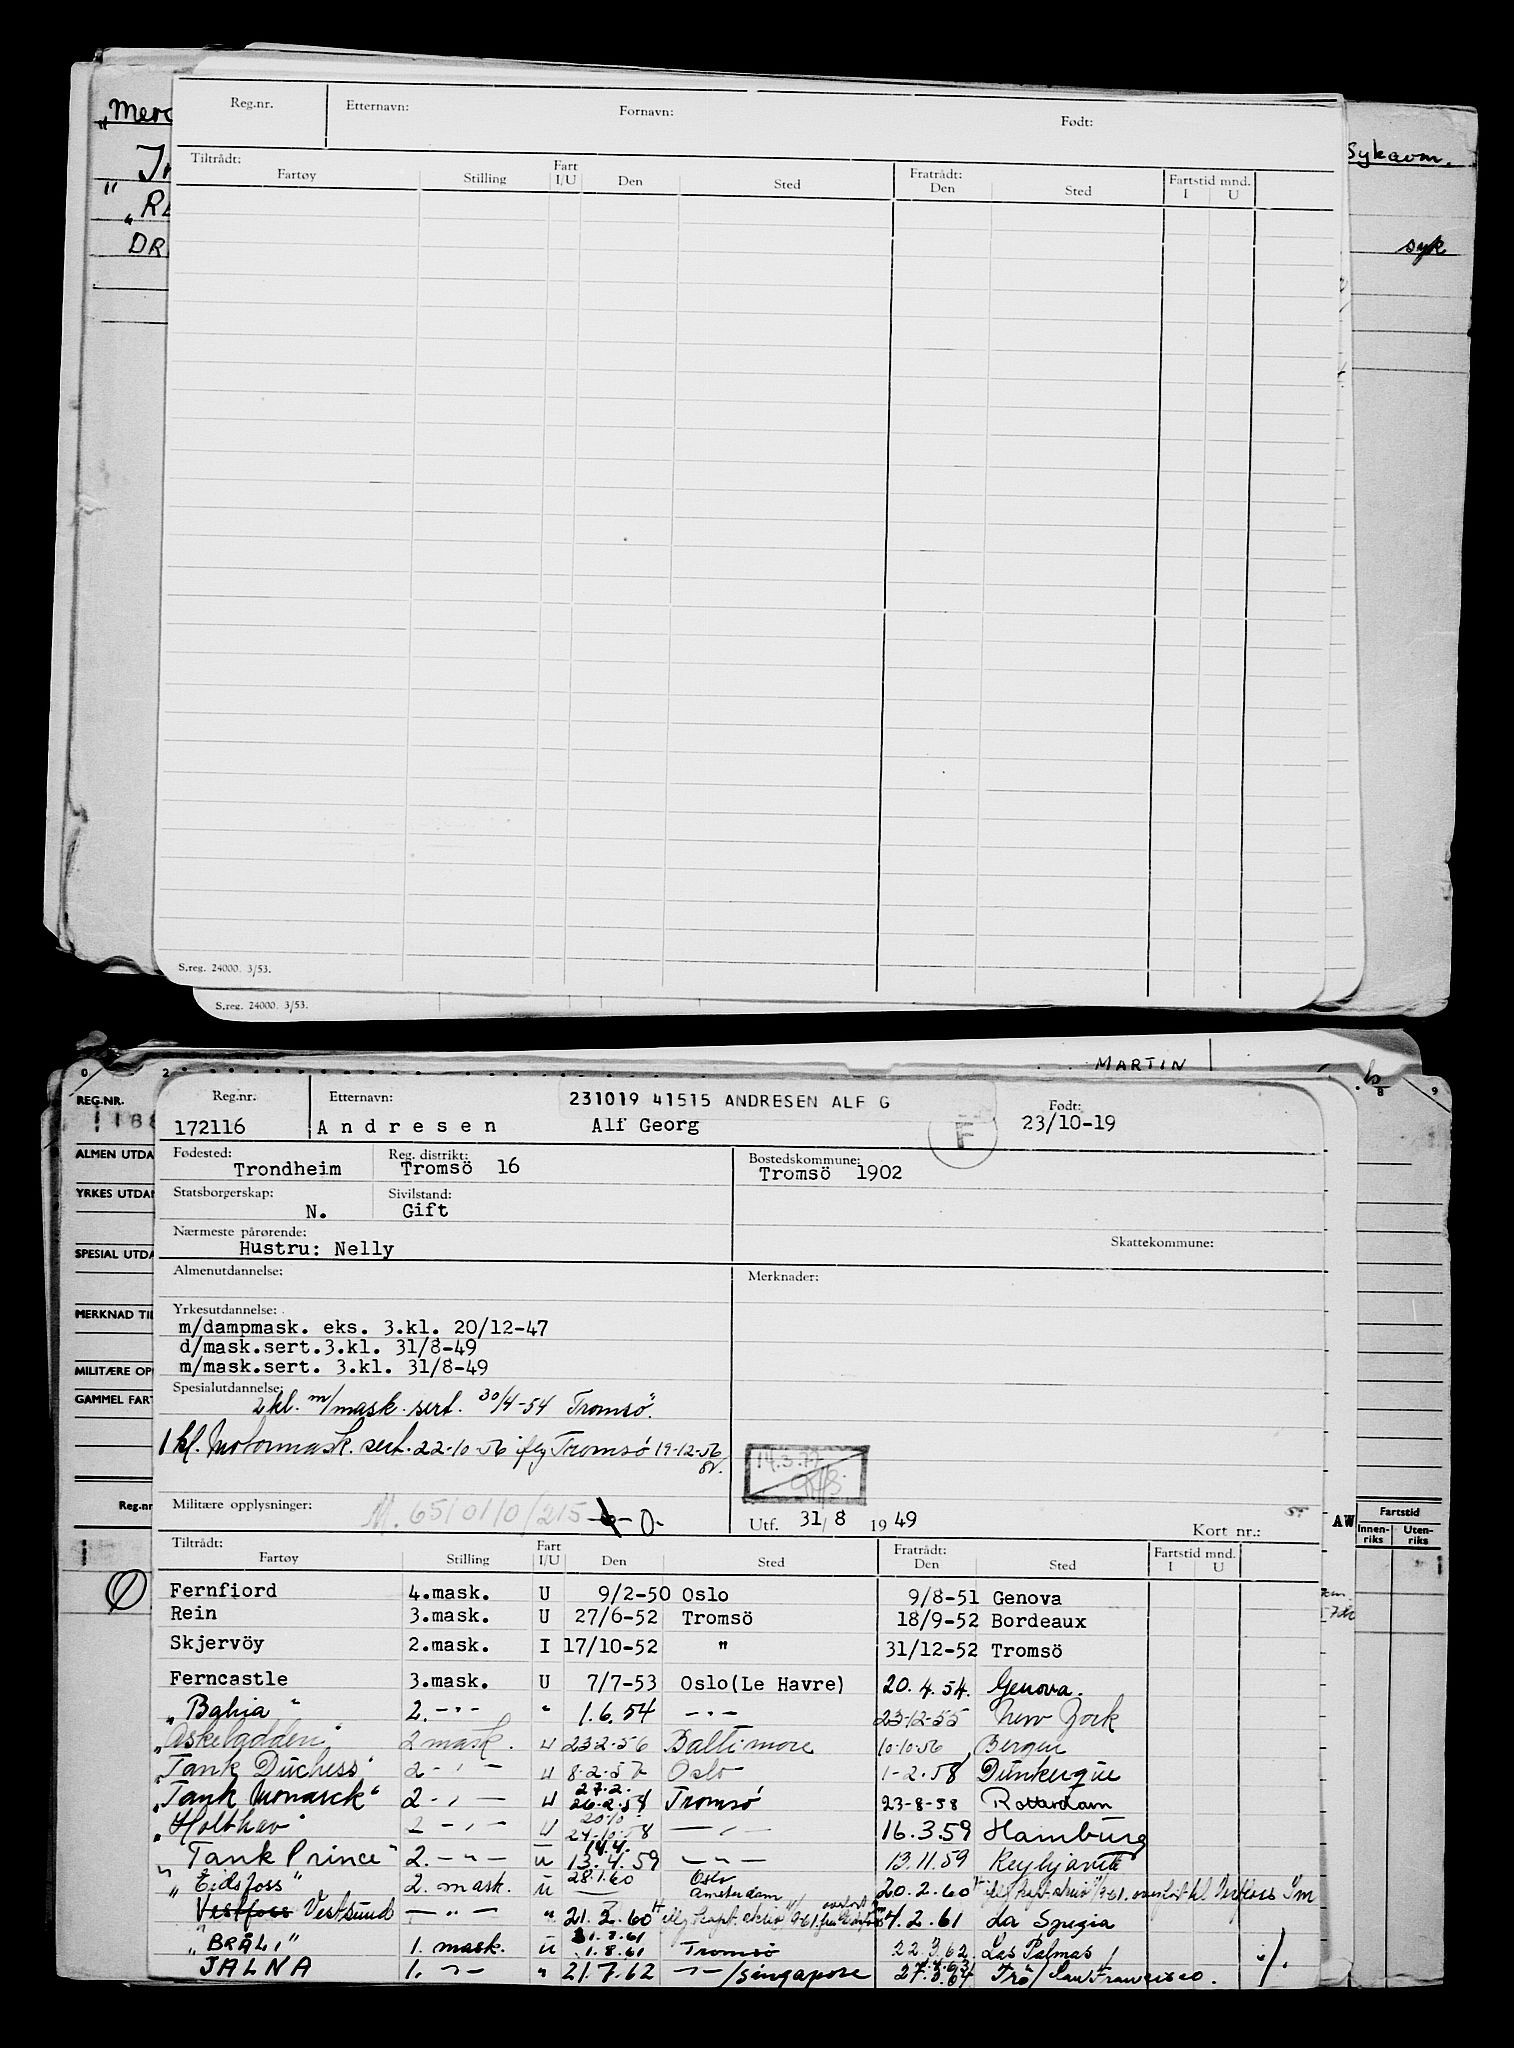 „Merc
Sykavm.
syk
DR
Reg.nr. Etternavn: Fornavn: Født:
Tiltrådt: Fart Fratrådt: Fartstid mnd.
Fartøy Stilling I/U Den Sted Den Sted I U
S.reg. 24000. 3/53.
S.reg. 24000. 3/53.
MARTIN
0 2 8 9
REG.NR.
ALMEN UTDA
YRKES UTDAN
SPECIAL UTDA
MERKNAD TIL
MILITÆRE OPP
GAMMEL FART
Reg.nr
Reg.nr. Etternavn: 231019 41515 ANDRESEN ALF G Født:
172116 Andresen Alf Georg F 23/10-19
Fødested: Reg. distrikt: Bostedskommune:
Trondheim Tromsö 16 Tromsö 1902
Statsborgerskap: Sivilstand:
N. Gift
Nærmeste pårørende: Skattekommune:
Hustru: Nelly
Almenutdannelse: Merknader:
Yrkesutdannelse:
m/dampmask. eks. 3.kl. 20/12-47
d/mask.sert.3.kl. 31/8-49
m/mask.sert. 3.kl. 31/8-49
Spesialutdannelse:
2kl. m/mask. sert. 30/4-54 Tromsö.
1 kl. Motormask. sert. 22-10-56 iflg Tromsö 19-12-56
14.3.77
Militære opplysninger: M. 651010/215 -0-
Utf. 31/8 1949 Kort nr.:
AW Fartstid
Innen-riks Uten-riks
Tiltrådt: Fart Fratrådt: Fartstid mnd.
Fartøy Stilling I/U Den Sted Den Sted I U
Fernfiord 4.mask. U 9/2-50 Oslo 9/8-51 Genova
Rein 3.mask. U 27/6-52 Tromsö 18/9-52 Bordeaux
Skjervöy 2.mask. I 17/10-52 " 31/12-52 Tromsö
Ferncastle 3.mask. U 7/7-53 Oslo(Le Havre) 20.4.54. Genova.
„Bahia" 2.-"- " 1.6.54 -"- 23-12-55 New York
„Askeladden" 2 mask. U 23-2-56 Baltimore 10-10-56 Bergen
„Tank Duchess" 2-"- U 8.2.57 Oslo 1-2-58 Dunkerque
„Tank Monarck" 2-"- U 27.2. 26.2.58 Tromsø 23-8-58 Rotterdam
„Holthav" 2-"- U 20/10- 24-10-58 -"- 16.3.59 Hamburg
„Tank Prince" 2.-"- U 14.4. 13.4.59 -"- 13.11.59 Reykjavik
„Eidsfoss" 2. mask. U 28.1.60 Oslo Amsterdam 20.2.60
Vestfoss Vestsund -"- " 21.2.60 4.2.61 La Spezia
„BRÅLI" 1. mask. U 1.8.61 1.8.61 Tromsø 22.3.62 Las Palmas
JALNA 1.-"- " 21.7.62 -"-/Singapore 27.3.64 Trø/San Francisco. ./.